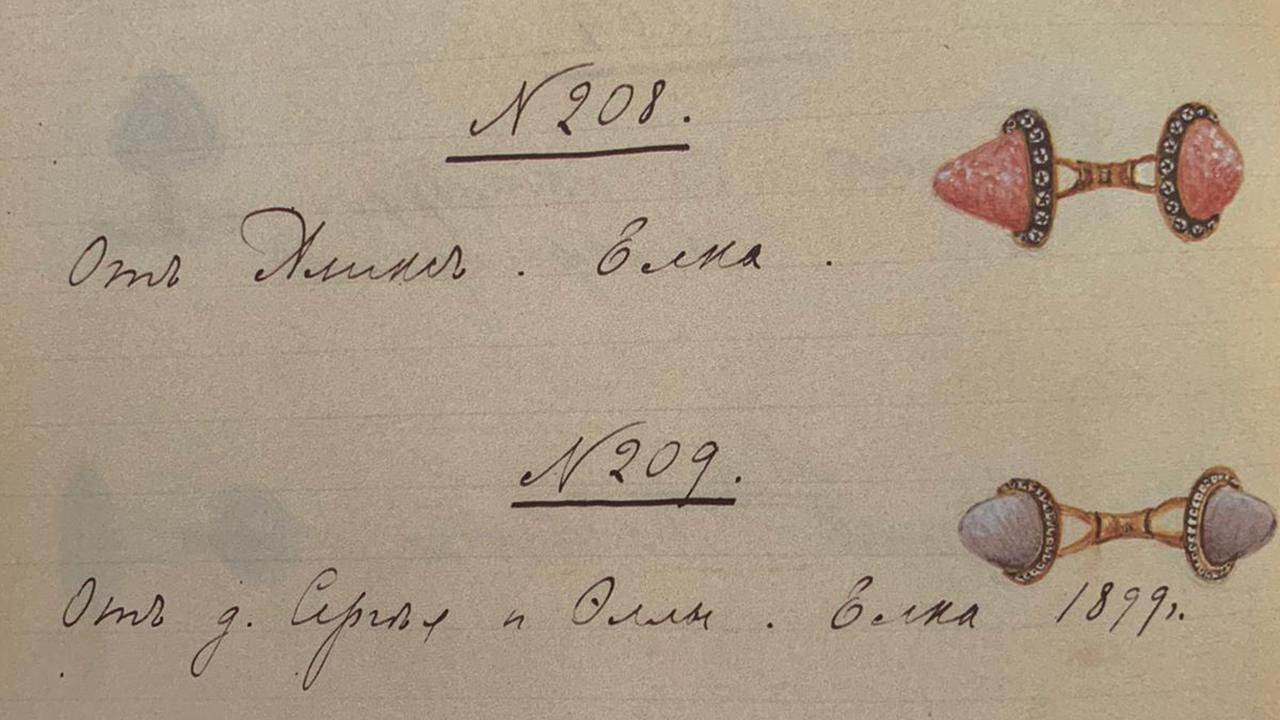 N 208.
Отъ Аликсъ. Елка.
N 209.
Отъ д. Сергѣя и Эллы. Елка 1899 г.